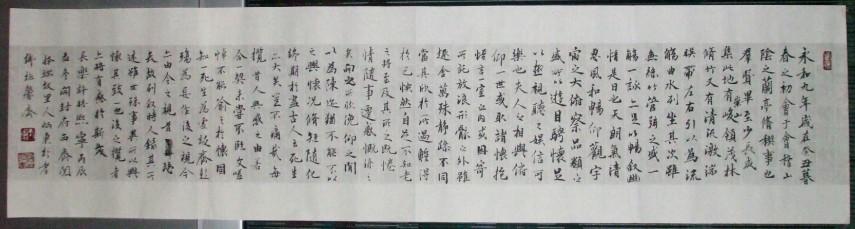 永和九年歲在癸丑暮
春之初會于會稽山
陰之蘭亭脩稧事也
群賢畢至少長咸
集此地有崇峻領茂林
脩竹又有清流激湍
暎帶左右引以為流
觴曲水列坐其次雖
無絲竹管弦之盛一
觴一詠亦足以暢敘幽
情是日也天朗氣清
惠風和暢仰觀宇
宙之大俯察品類之
盛所以遊目騁懷足
以極視聽之娛信可
樂也夫人之相與俯
仰一世或取諸懷抱
悟言一室之內或因寄
所託放浪形骸之外雖
趣舍萬殊靜躁不同
當其欣於所遇蹔得
於己快然自足不知老
之將至及其所之既惓
情隨事遷感慨係之
矣向之所欣俛仰之閒
以為陳迹猶不能不以
之興懷況脩短隨化
終期於盡古人云死生
亦大矣豈不痛哉每
攬昔人興感之由若
合一契未嘗不臨文嗟
悼不能喻之於懷固
知一死生為虛誕齊彭
殤為妄作後之視今
亦由今之視昔悲
夫故列敘時人錄其所
述雖世殊事異所以興
懷其致一也後之攬者
亦將有感於斯文